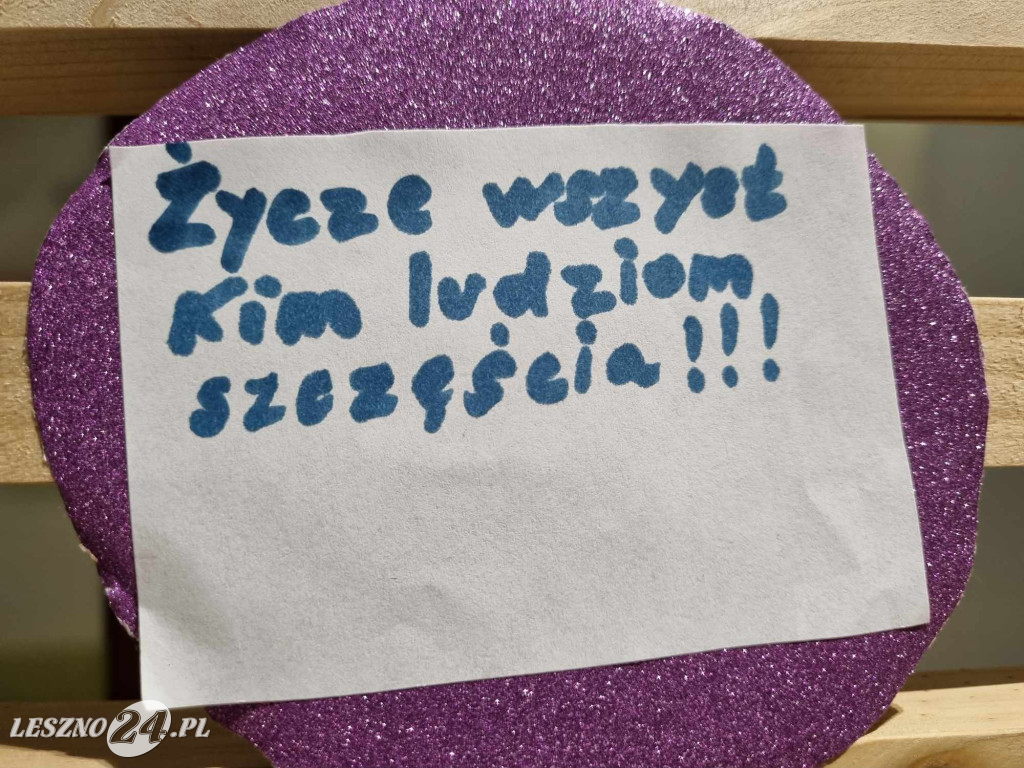 Życze wszyst
kim ludziom
szczęścia!!!
LESZNO24.PL